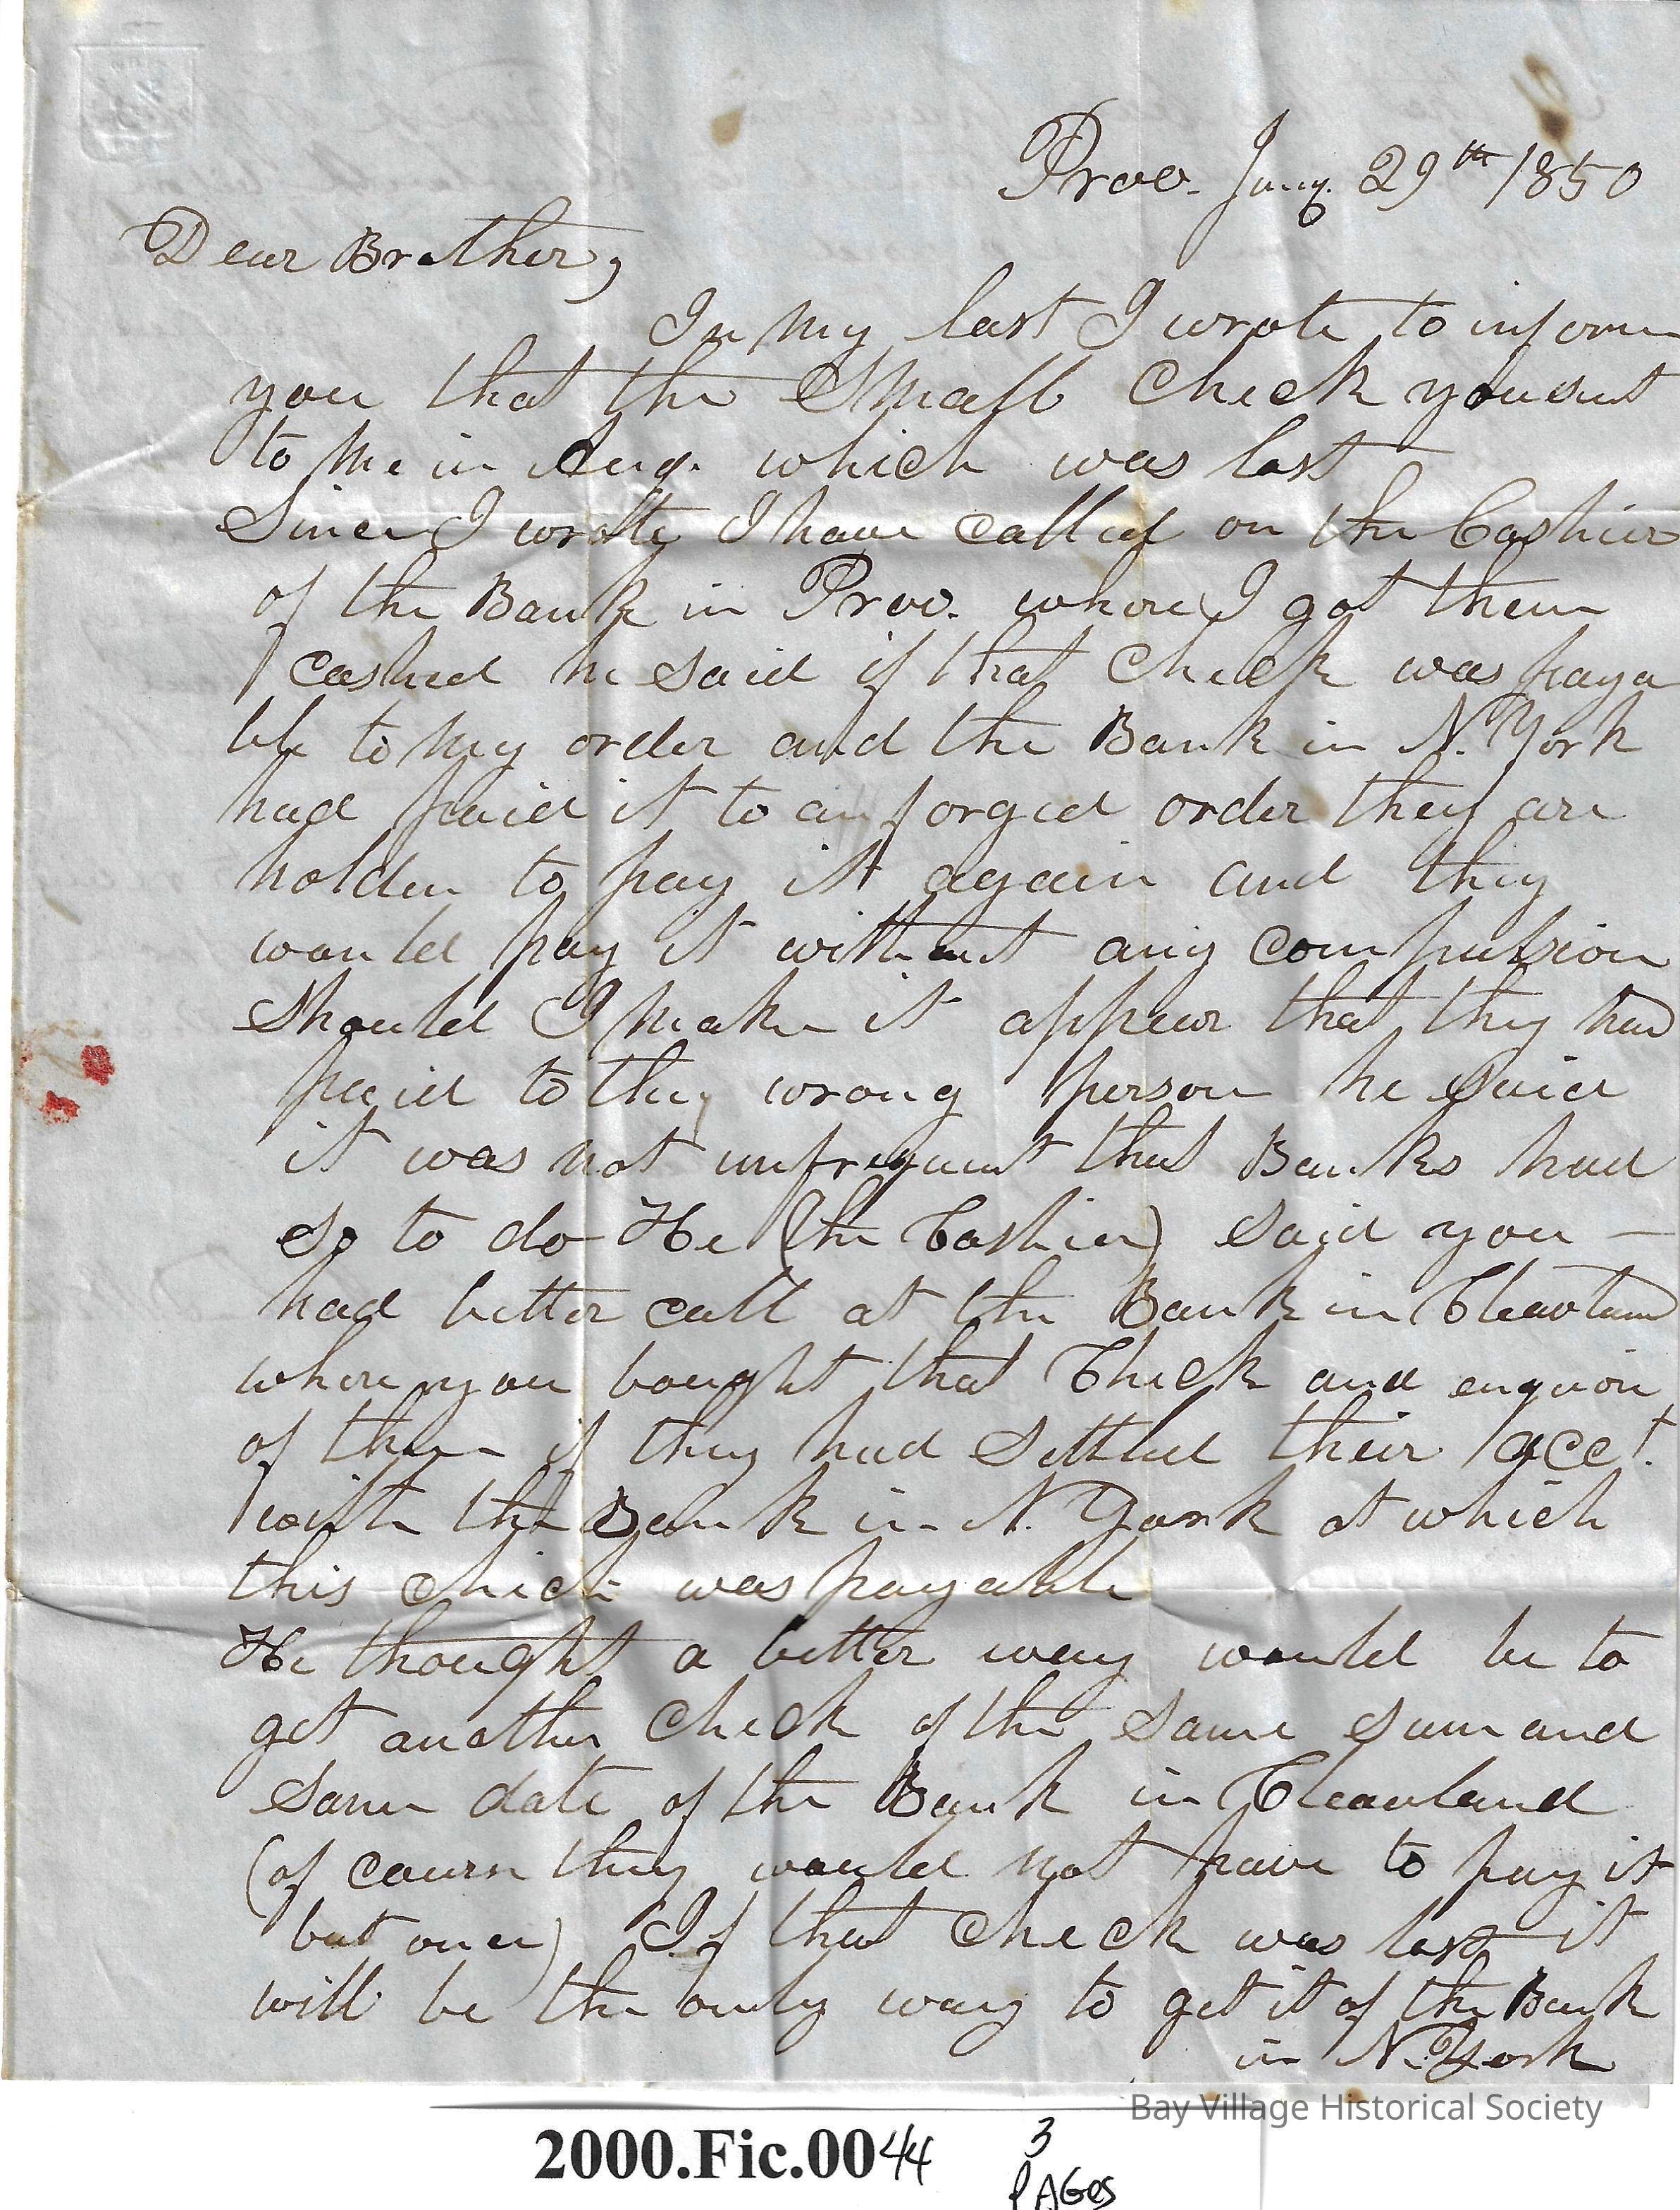 Prov. Jany. 29th 1850
Dear Brother,
In my last I wrote to inform
you that the Small Check you sent
to me in Aug. which was lost
Since I wrote I have called on the Cashier
of the Bank in Prov. where I got them
cashed he said if that Check was paya
ble to my order and the Bank in N. York
had paid it to an forged order they are
holden to pay it again and they
would pay it without any compulsion
Should I make it appear that they had
paid to they wrong person he said
it was not unfrequent that Banks had
so to do He (the Cashier) said you —
had better call at the Bank in Cleavland
where you bought that Check and enquire
of them if they had Settled their acct.
with the Bank in N. York at which
this check was payable
He thought a better way would be to
get another Check of the same sum and
same date of the Bank in Cleaveland
(of course they would not have to pay it
but once) If that check was lost it
will be the only way to get it of the Bank
in N. York
Bay Village Historical Society
2000.Fic.0044
3
PAGES